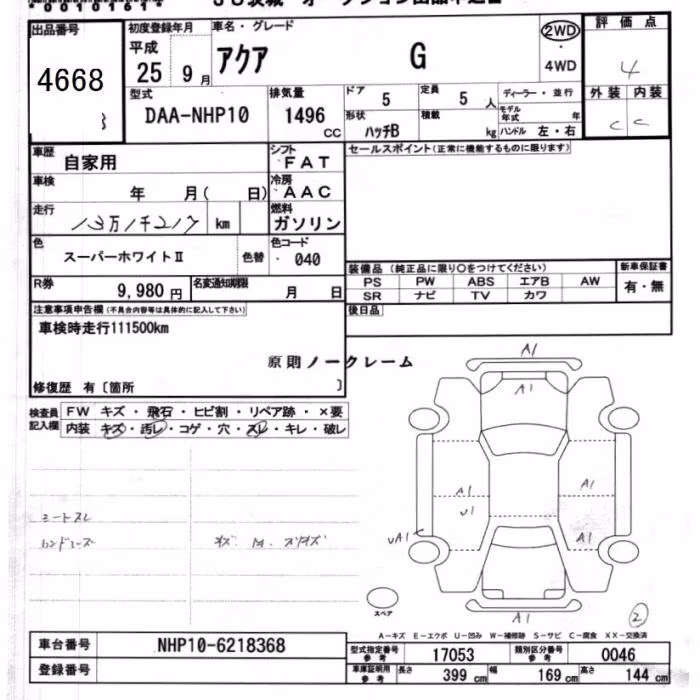 出品番号
4668
初度登録年月
平成
25 9月
車名・グレード
アクア G
2WD
・
4WD
評価点
4
型式
DAA-NHP10
排気量
1496
CC
ドア
5
定員
5 人
ディーラー・並行
外装 内装
C C
形状
ハッチB
積載
kg
モデル年式 年
ハンドル 左・右
車歴
自家用
シフト
FAT
セールスポイント(正常に機能するものに限ります)
車検
年 月( 日)
冷房
AAC
走行
km
燃料
ガソリン
色
スーパーホワイトⅡ
色替
色コード
040
装備品 (純正品に限り○をつけてください)
新車保証書
PS PW ABS エアB AW
有・無
SR ナビ TV カワ
R券
9,980 円
名変通知期限
月 日
後日品
注意事項申告欄(不具合内容等は具体的に記入して下さい)
車検時走行111500km
原則ノークレーム
修復歴 有〔箇所 〕
検査員
記入欄
FW キズ・飛石・ヒビ割・リペア跡・×要
内装 キズ・汚レ・コゲ・穴・スレ・キレ・破レ
A1
A1
A1
A1
U1
UA1
A1
A1
スペア
②
A-キズ E-エクボ U-凹み W-補修跡 S-サビ C-腐食 XX-交換済
車台番号
NHP10-6218368
型式指定番号
参考
17053
類別区分番号
参考
0046
登録番号
車庫証明用
参考
長さ
399 cm
幅
169 cm
高さ
144 cm